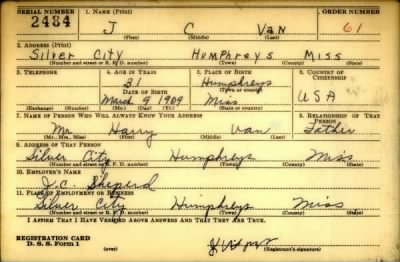 SERIAL NUMBER 1. NAME (Print) ORDER NUMBER
2484 J C Van 61
(First) (Middle) (Last)
2. ADDRESS (Print)
Silver City Humphreys Miss
(Number and street or R. F. D. number) (Town) (County) (State)
3. TELEPHONE 4. AGE IN YEARS 5. PLACE OF BIRTH 6. COUNTRY OF CITIZENSHIP
31 Humphreys
DATE OF BIRTH (Town or county)
March 9 1909 Miss USA
(Exchange) (Number) (Mo.) (Day) (Yr.) (State or country)
7. NAME OF PERSON WHO WILL ALWAYS KNOW YOUR ADDRESS 8. RELATIONSHIP OF THAT PERSON
Mr. Harry Van Father
(Mr., Mrs., Miss) (First) (Middle) (Last)
9. ADDRESS OF THAT PERSON
Silver City Humphreys Miss
(Number and street or R. F. D. number) (Town) (County) (State)
10. EMPLOYER'S NAME
J.C. Sheperd
11. PLACE OF EMPLOYMENT OR BUSINESS
Silver City Humphreys Miss
(Number and street or R. F. D. number) (Town) (County) (State)
I AFFIRM THAT I HAVE VERIFIED ABOVE ANSWERS AND THAT THEY ARE TRUE.
REGISTRATION CARD
D. S. S. Form 1 (over) (Registrant's signature)